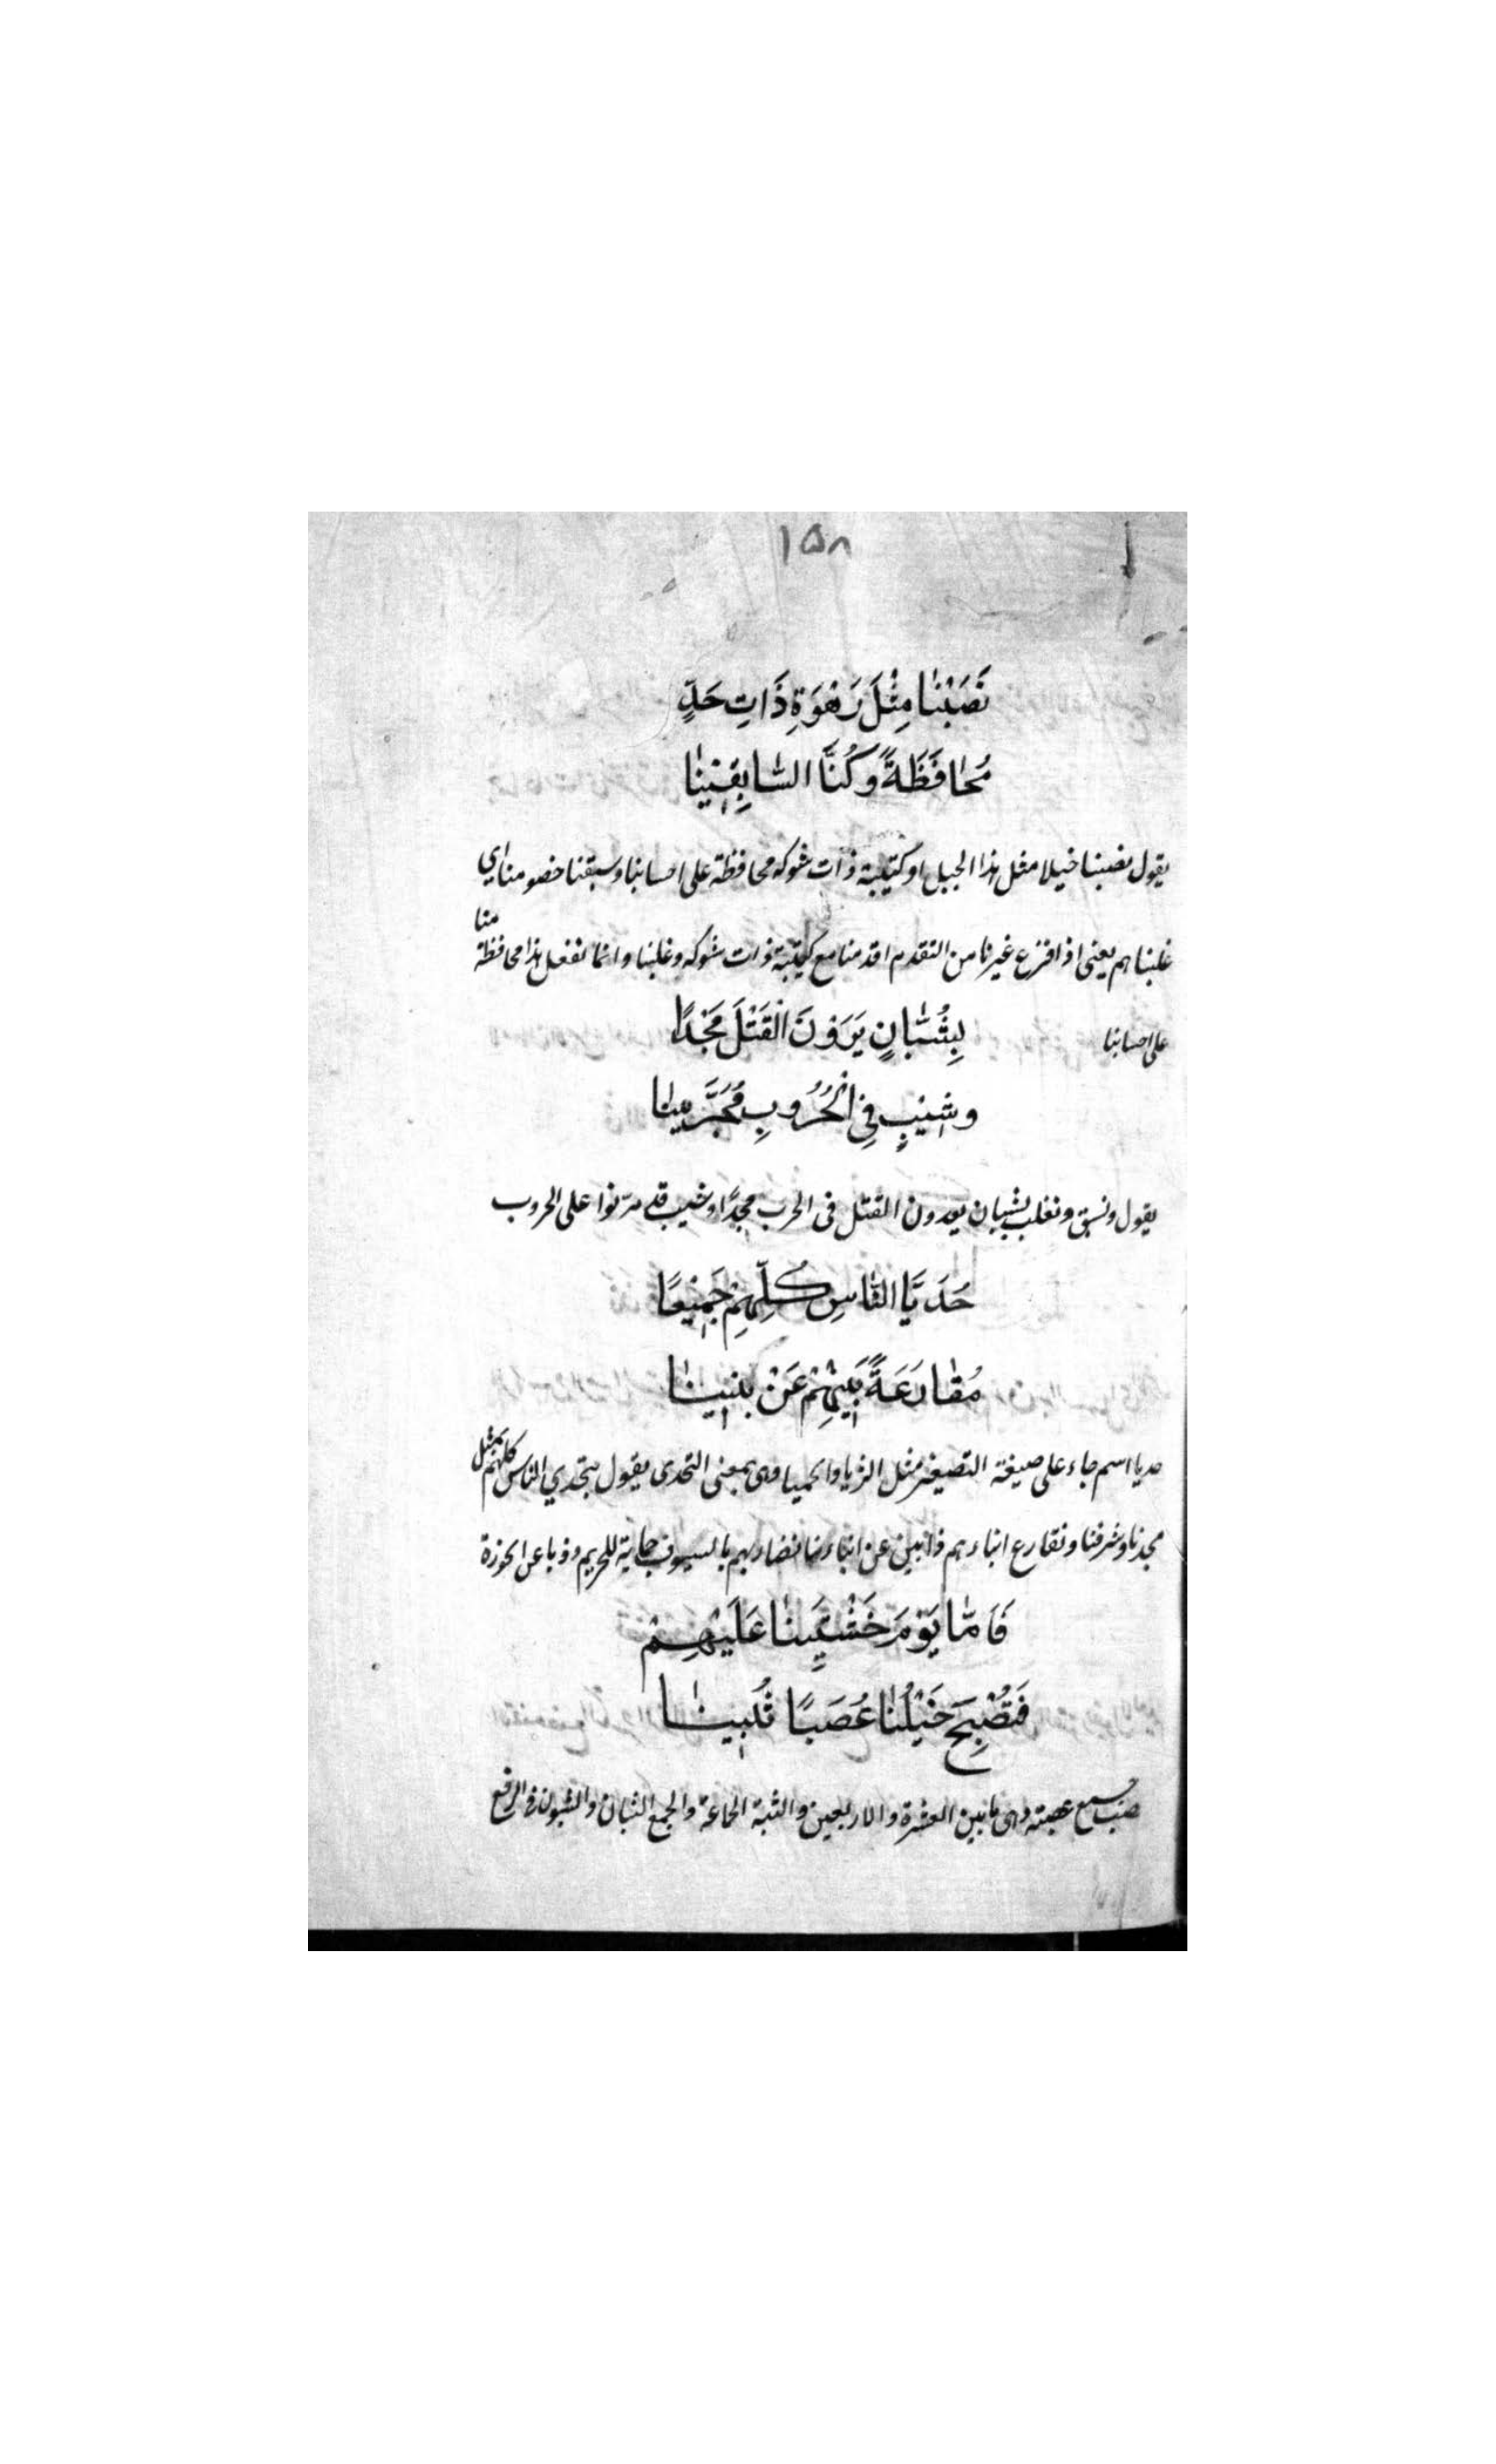 ١۵٨
نَصَبْنَا مِثْلَ رَهْوَةِ ذَاتِ حَدٍّ
مُحَافَظَةً وَكُنَّا السَّابِقِيْنَا
يقول نصبنا خيلا مثل هذا الجبل او كتيبة ذات شوكه محافظة على احسابنا وسبقنا خصومنا اى
غلبناهم يعنى اذا فزع غيرنا من التقدم اقدمنا مع كتيبة ذات شوكه وغلبنا وانما نفعل هذا محافظة منا
على احسابنا
بِشُبَّانٍ يَرَوْنَ الْقَتْلَ مَجْدًا
وشِيْبٍ فِي الْحُرُوبِ مُجَرَّبِينَا
يقول ونسبق ونغلب بشبان يعدون القتل فى الحرب مجدًا وشيب قد مرّنوا على الحروب
حُدَيَّا النَّاسِ كُلِّهِمْ جَمِيْعًا
مُقَارَعَةً بَنِيهِمْ عَنْ بَنِيْنَا
حديا اسم جاء على صيغة التصغير مثل الثريا والحميا وهى بمعنى التحدى يقول نتحدي الناس كلهم بمثل
مجدنا وشرفنا ونقارع ابناءهم ذابين عن ابناءنا نضاربهم بالسيوف حماية للحريم وذبا عن الحوزة
فَاَمَّا يَوْمَ خَشْيَتِنَا عَلَيْهِمْ
فَتُصْبِحَ خَيْلُنَا عُصَبًا ثُبِينَا
عصب جمع عصبته وهى ما بين العشرة والاربعين والثبة الجماعة والجمع الثبات والثبون فى الرفع